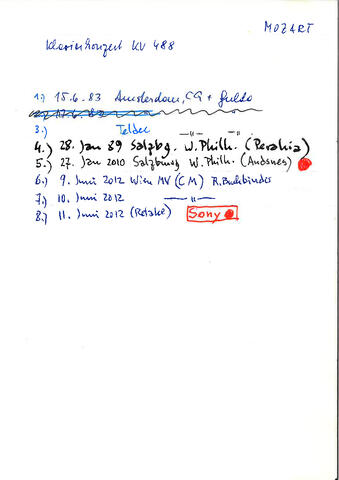 MOZART
Klavierkonzert KV 488
1.) 15.6.83 Amsterdam, CG + Gulda
2.) 17.6.83
3.) Teldec —"— —"—
4.) 28. Jan 89 Salzbg. W. Philh. (Perahia)
5.) 27. Jan 2010 Salzburg W. Philh. (Andsnes)
6.) 9. Juni 2012 Wien MV (CM) R. Buchbinder
7.) 10. Juni 2012 —"—
8.) 11. Juni 2012 (Retake) Sony